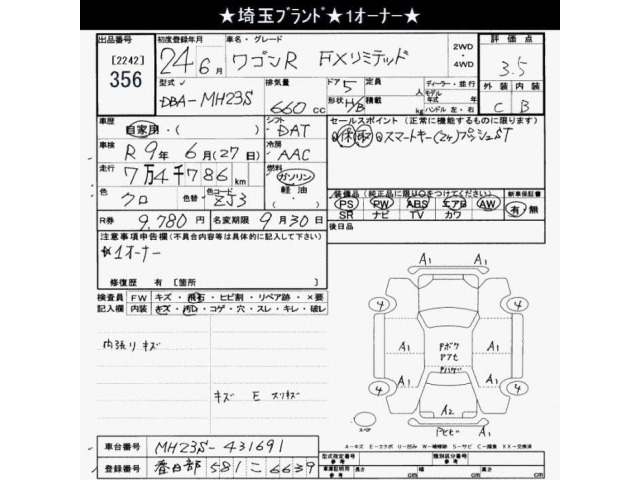 ★埼玉ブランド★1オーナー★
出品番号 [2242] 356
初度登録年月 24年6月
車名・グレード ワゴンR FXリミテッド
2WD・4WD
評価点 3.5
外装 C 内装 B
型式 DBA-MH23S
排気量 660cc
ドア 5 形状 H/B
定員 人 積載 kg
ディーラー・並行
モデル年式 年
ハンドル 左・右
車歴 自家用・( )
シフト DAT
車検 R9年6月(27日)
冷房 AAC
走行 7万4千786km
燃料 ガソリン・軽油・
色 クロ 色替 色コード ZJ3
R券 9,780円 名変期限 9月30日
セールスポイント(正常に機能するものに限ります)
スマートキー(2ヶ)プッシュST
装備品(純正品に限り○をつけてください)
PS PW ABS エアB AW
SR ナビ TV カワ
新車保証書 有・無
後日品
注意事項申告欄(不具合内容等は具体的に記入して下さい)
1オーナー
修復歴 有 [箇所 ]
検査員記入欄
FW キズ・飛石・ヒビ割・リペア跡・×要
内装 キズ・汚レ・コゲ・穴・スレ・キレ・破レ
内張りキズ
キズ E スリキズ
A1
A1
4
4
A1
A1
A1
A1
4
4
A2
A1
車台番号 MH23S-431691
登録番号 春日部 581 こ 6639
A-キズ E-エクボ U-凹み W-補修跡 S-サビ C-腐食 XX-交換済
型式指定番号 参考
類別区分番号 参考
車両証明用 参考 長さ cm 幅 cm 高さ cm